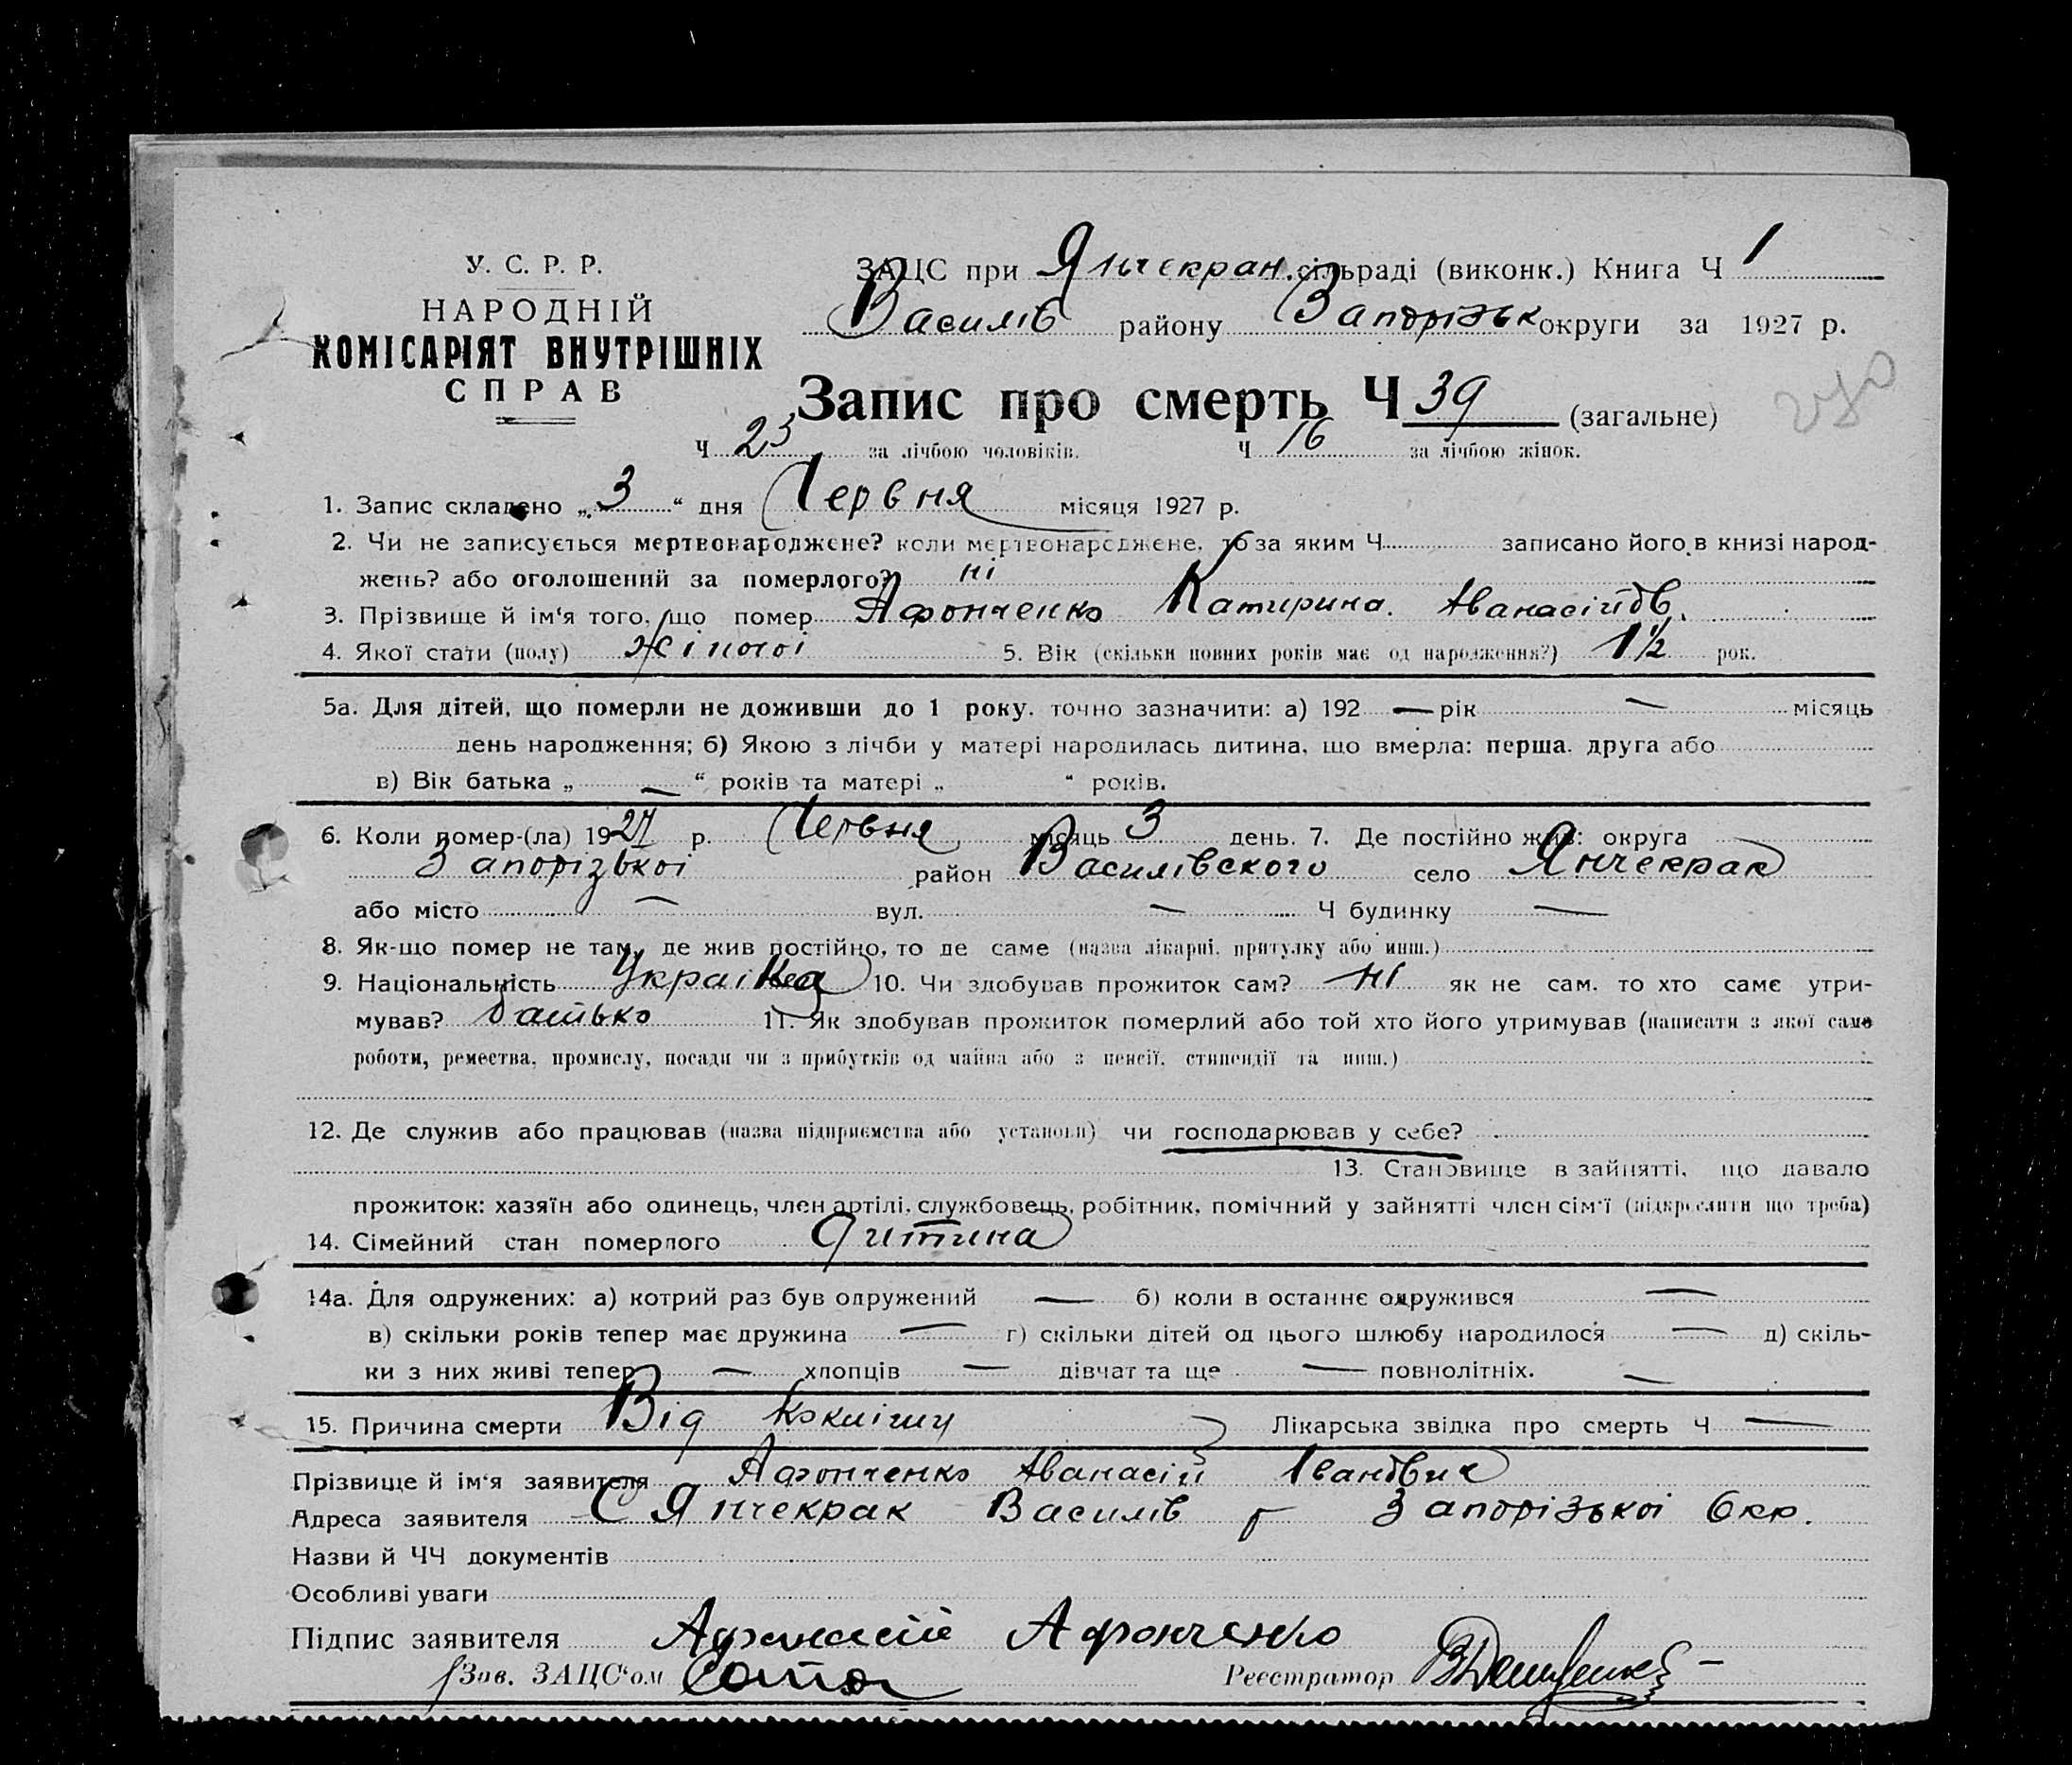 У. С. Р. Р.
НАРОДНІЙ
КОМІСАРІЯТ ВНУТРІШНІХ
СПРАВ
ЗАЦС при Янчекрак. сільраді (виконк.) Книга Ч 1
Василів району Запорізьк округи за 1927 р.
Запис про смерть Ч 39 (загальне)
Ч 23 за лічбою чоловіків. Ч 16 за лічбою жінок.
1. Запис складено „ 3 “ дня Червня місяця 1927 р.
2. Чи не записується мертвонароджене? коли мертвонароджене, то за яким Ч записано його в книзі народ-
жень? або оголошений за померлого? ні
3. Прізвище й ім‘я того, що помер Афонченко Катирина. Аванасійов.
4. Якої стати (полу) жіночоі 5. Вік (скільки повних років має од народження?) 1½ рок.
5а. Для дітей, що померли не доживши до 1 року. точно зазначити: а) 192 — рік — місяць
день народження; б) Якою з лічби у матері народилась дитина, що вмерла: перша. друга або
в) Вік батька „ — “ років та матері „ “ років.
6. Коли помер-(ла) 1927 р. Червня місяць 3 день. 7. Де постійно жив: округа
Запорізькоі район Василівского село Янчекрак
або місто — вул. — Ч будинку —
8. Як-що помер не там, де жив постійно, то де саме (назва лікарні, притулку або инш.)
9. Національність Украінка 10. Чи здобував прожиток сам? ні як не сам. то хто саме утри-
мував? батько 11. Як здобував прожиток померлий або той хто його утримував (написати з якої саме
роботи, ремества, промислу, посади чи з прибутків од майна або з пенсії, стипендії та инш.)
12. Де служив або працював (назва підприємства або установи) чи господарював у себе?
13. Становище в зайнятті, що давало
прожиток: хазяїн або одинець, член артілі, службовець, робітник, помічний у зайнятті член сім‘ї (підкреслити що треба)
14. Сімейний стан померлого Дитина
14а. Для одружених: а) котрий раз був одружений — б) коли в останнє одружився —
в) скільки років тепер має дружина — г) скільки дітей од цього шлюбу народилося — д) скіль-
ки з них живі тепер — хлопців — дівчат та ще — повнолітніх. —
15. Причина смерти Від Лікарська звідка про смерть Ч —
Прізвище й ім‘я заявителя Афонченко Аванасій Іванович
Адреса заявителя С Янчекрак Василів р Запорізькоі Окр.
Назви й ЧЧ документів
Особливі уваги
Підпис заявителя Афанасій Афонченко
Зав. ЗАЦС‘ом
Реєстратор